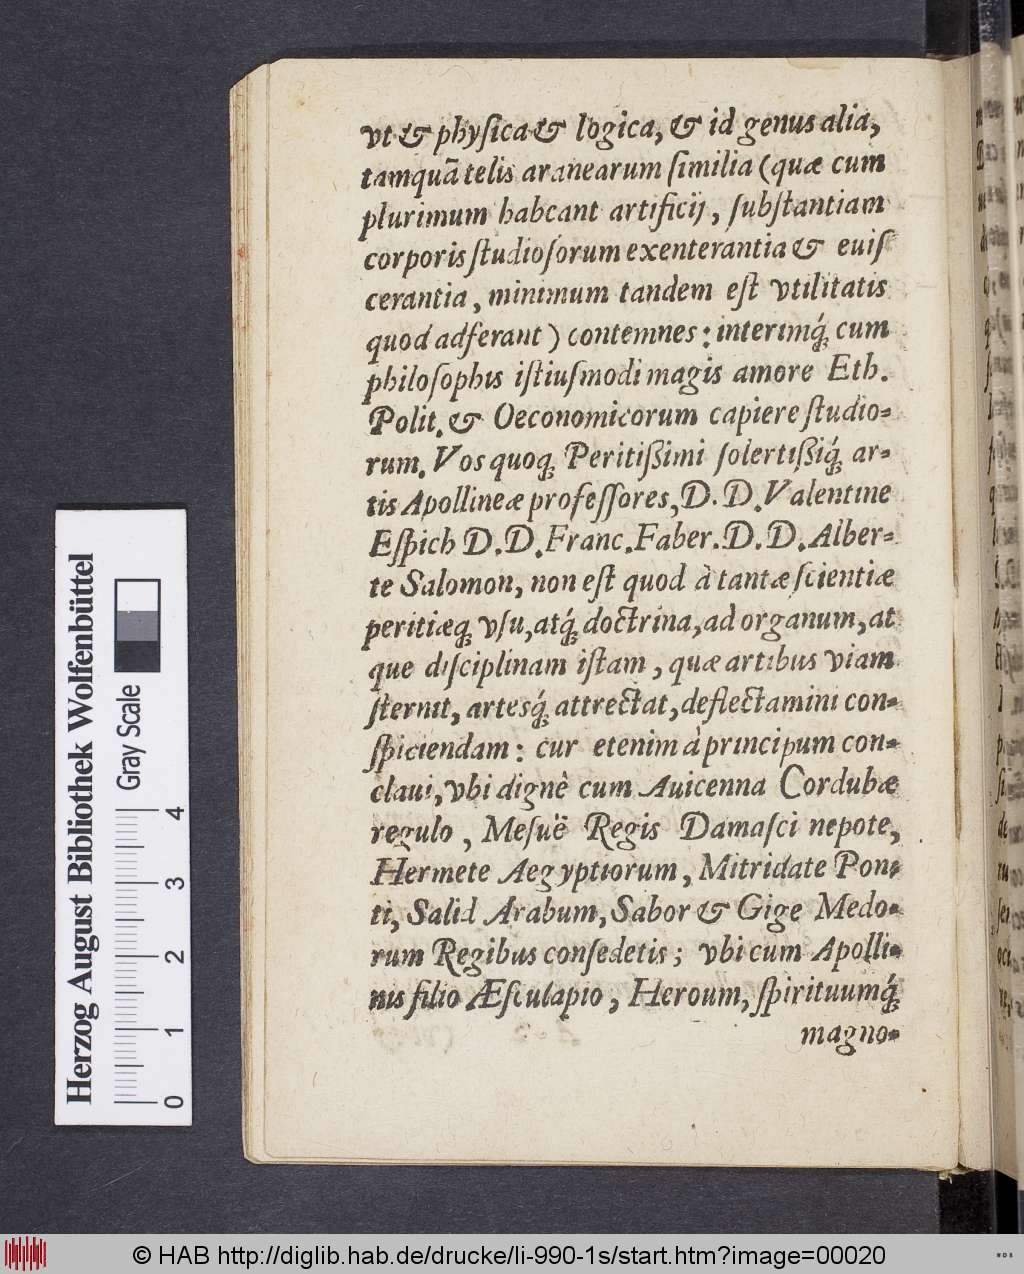 vt & phyſica & logica, & id genus alia,
tamquã telis aranearum ſimilia (quæ cum
plurimum habeant artificij, ſubſtantiam
corporis ſtudioſorum exenterantia & euiſ
cerantia, minimum tandem eſt vtilitatis
quod adferant) contemnes: interimq́ꝫ cum
philoſophis iſtiuſmodi magis amore Eth.
Polit. & Oeconomicorum capiere ſtudio-
rum. Vos quoqꝫ Peritißimi ſolertißiq́ꝫ ar-
tis Apollineæ profeſſores, D. D. Valentine
Eſpich D. D. Franc. Faber. D. D. Alber-
te Salomon, non eſt quod à tantæ ſcientiæ
peritiæqꝫ vſu, atq́ꝫ doctrina, ad organum, at
que diſciplinam iſtam, quæ artibus viam
ſternit, artesq́ꝫ attrectat, deflectamini con-
ſpiciendam: cur etenim à principum con-
claui, vbi dignè cum Auicenna Cordubæ
regulo, Meſuë Regis Damaſci nepote,
Hermete Aegyptiorum, Mitridate Pon-
ti, Salid Arabum, Sabor & Gige Medo-
rum Regibus conſedetis; vbi cum Apolli-
nis filio Æſculapio, Heroum, ſpirituumq́ꝫ
magno-
Herzog August Bibliothek Wolfenbüttel
Gray Scale
0 1 2 3 4
© HAB http://diglib.hab.de/drucke/li-990-1s/start.htm?image=00020
WDB